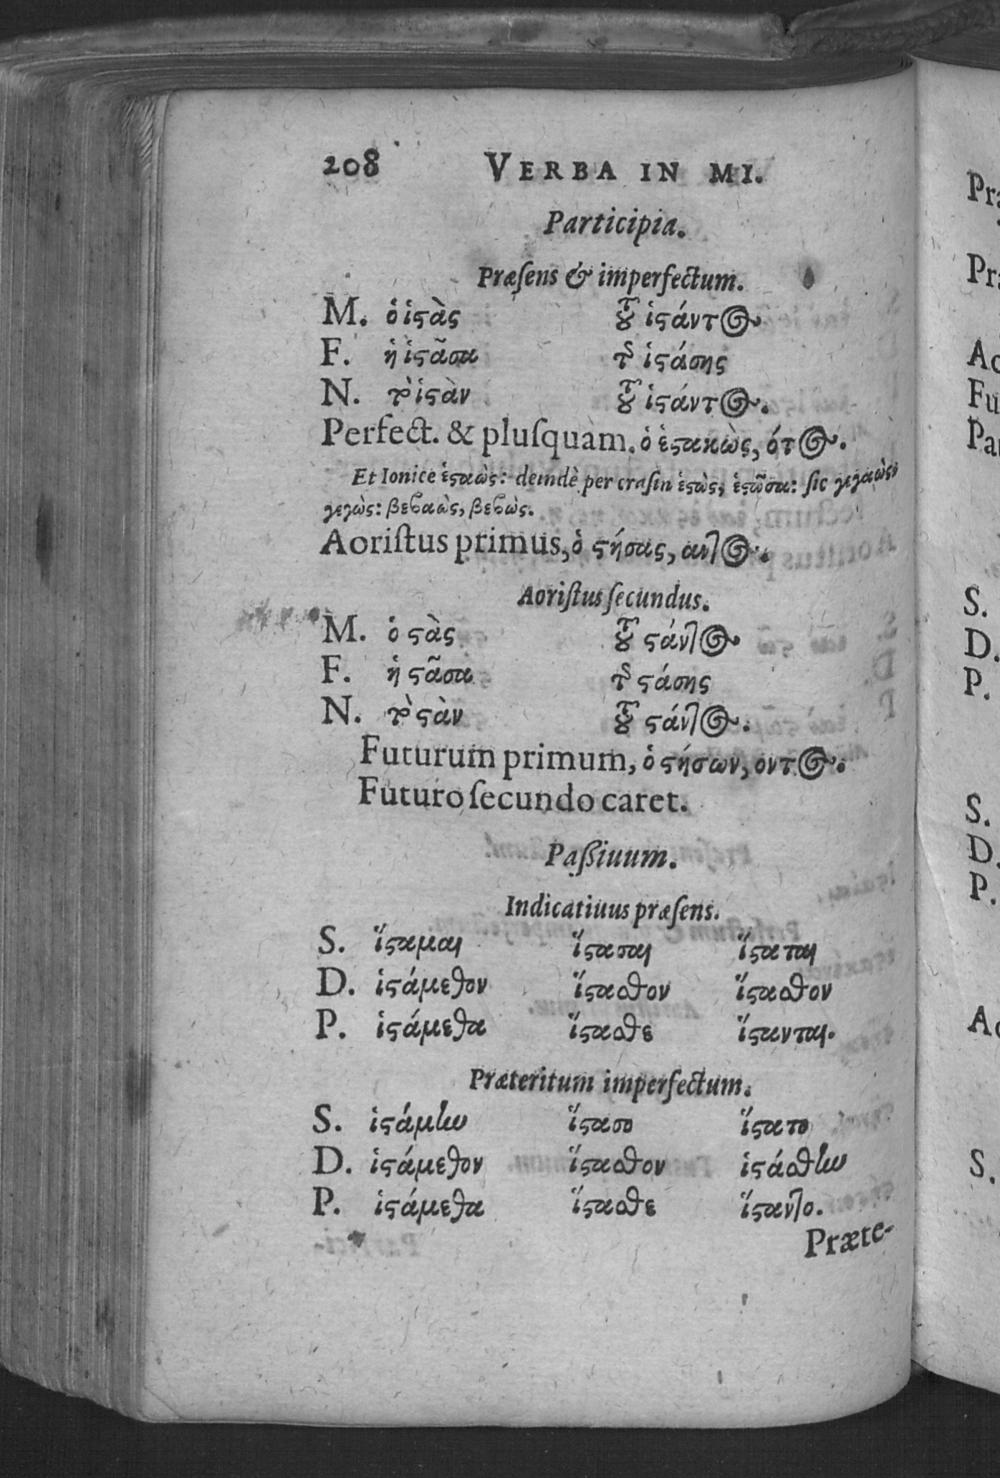 208 VERBA IN MI.
Participia.
Præſens & imperfectum.
M. ὁ ἱϛὰς τοῦ ἱϛάντος
F. ἡ ἱϛᾶσα τῆς ἱϛάσης
N. τὸ ἱϛὰν τοῦ ἱϛάντος.
Perfect. & pluſquàm. ὁ ἑϛακὼς, ότος.
Et Ionice ἑϛαὼς: deindè per craſin ἑϛὼς, ἑϛῶσα: ſic γεγαὼς
γεγὼς: βεβαὼς, βεβὼς.
Aoriſtus primus, ὁ ϛήσας, αντος.
Aoriſtus ſecundus.
M. ὁ ϛὰς τοῦ ϛάντος
F. ἡ ϛᾶσα τῆς ϛάσης
N. τὸ ϛὰν τοῦ ϛάντος.
Futurum primum, ὁ ϛήσων, οντος.
Futuro ſecundo caret.
Paßiuum.
Indicatiuus præſens.
S. ἵϛαμαι ἵϛασαι ἵϛαται
D. ἱϛάμεθον ἵϛασθον ἵϛασθον
P. ἱϛάμεθα ἵϛασθε ἵϛανται.
Præteritum imperfectum.
S. ἱϛάμην ἵϛασο ἵϛατο
D. ἱϛάμεθον ἵϛασθον ἱϛάσθην
P. ἱϛάμεθα ἵϛασθε ἵϛαντο.
Præte-
S.
D.
P.
S.
D.
P.
S.